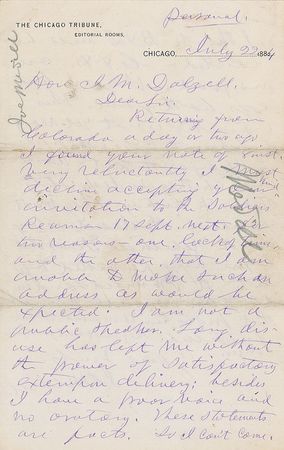 Personal.
THE CHICAGO TRIBUNE,
EDITORIAL ROOMS,
CHICAGO, July 23 1884
Joe Medill
Hon J. M. Dalzell.
Dear Sir.
Returning from
Colorado a day or two ago
I found your note of inst.
Very reluctantly I must
decline accepting your kind
invitation to the Soldiers
Reunion 17 Sept. next. for
two reasons - one lack of time
and the other that I am
unable to make such an
address as would be
expected. I am not a
public speaker. Long dis-
use has left me without
the power of satisfactory
extempore delivery; besides
I have a poor voice and
no oratory. These statements
are facts. So I can't come.
Medill